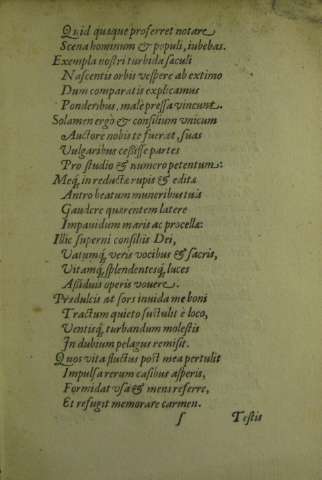 Quid quisque proferret notare
Scena hominum & populi, iubebas.
Exempla nostri turbida sæculi
Nascentis orbis vespere ab extimo
Dum comparatis explicamus
Ponderibus, male pressa vincunt.
Solamen ergo & consilium vnicum
Auctore nobis te fuerat, suas
Vulgaribus cessisse partes
Pro studio & numero petentum:
Meq, in reductæ rupis & edita
Antro beatum muneribus tuis
Gaudere quærentem latere
Impauidum maris ac procellæ:
Illic superni consiliis Dei,
Vatumq, veris vocibus & sacris,
Vitamq, splendentesq, luces
Assiduis operis vouere.
Prædulcis at sors inuida me boni
Tractum quieto sustulit è loco,
Ventisq, turbandum molestis
In dubium pelagus remisit.
Quos vita fluctus post mea pertulit
Impulsa rerum casibus asperis,
Formidat vsa & mens referre,
Et refugit memorare carmen.
ſ
Testis